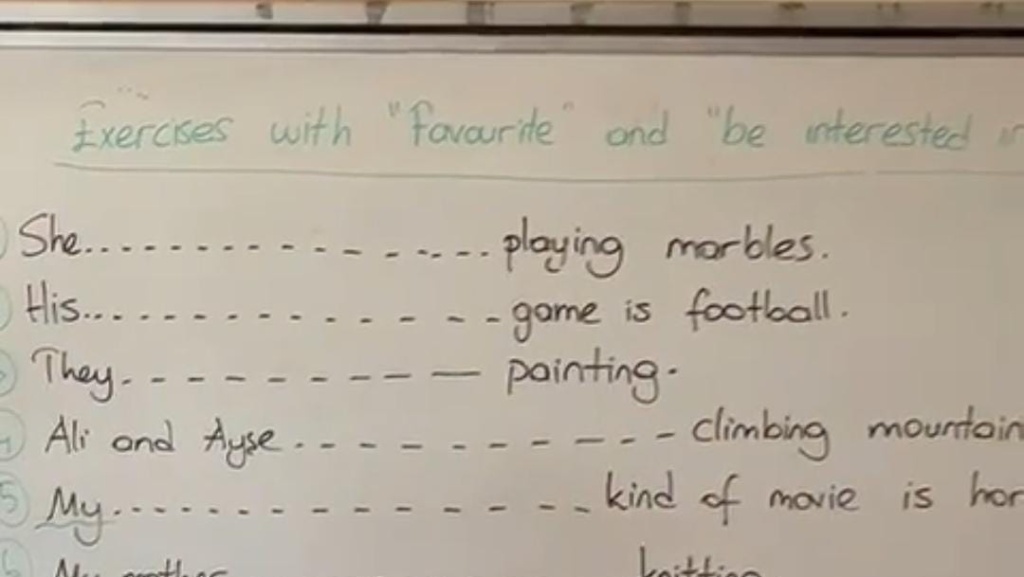 Exercises with "favourite" and "be interested in
She................... playing marbles.
His................... game is football.
3 They................... painting.
4 Ali and Ayşe................... climbing mountain
5 My................... kind of movie is hor
6 My mother knitting